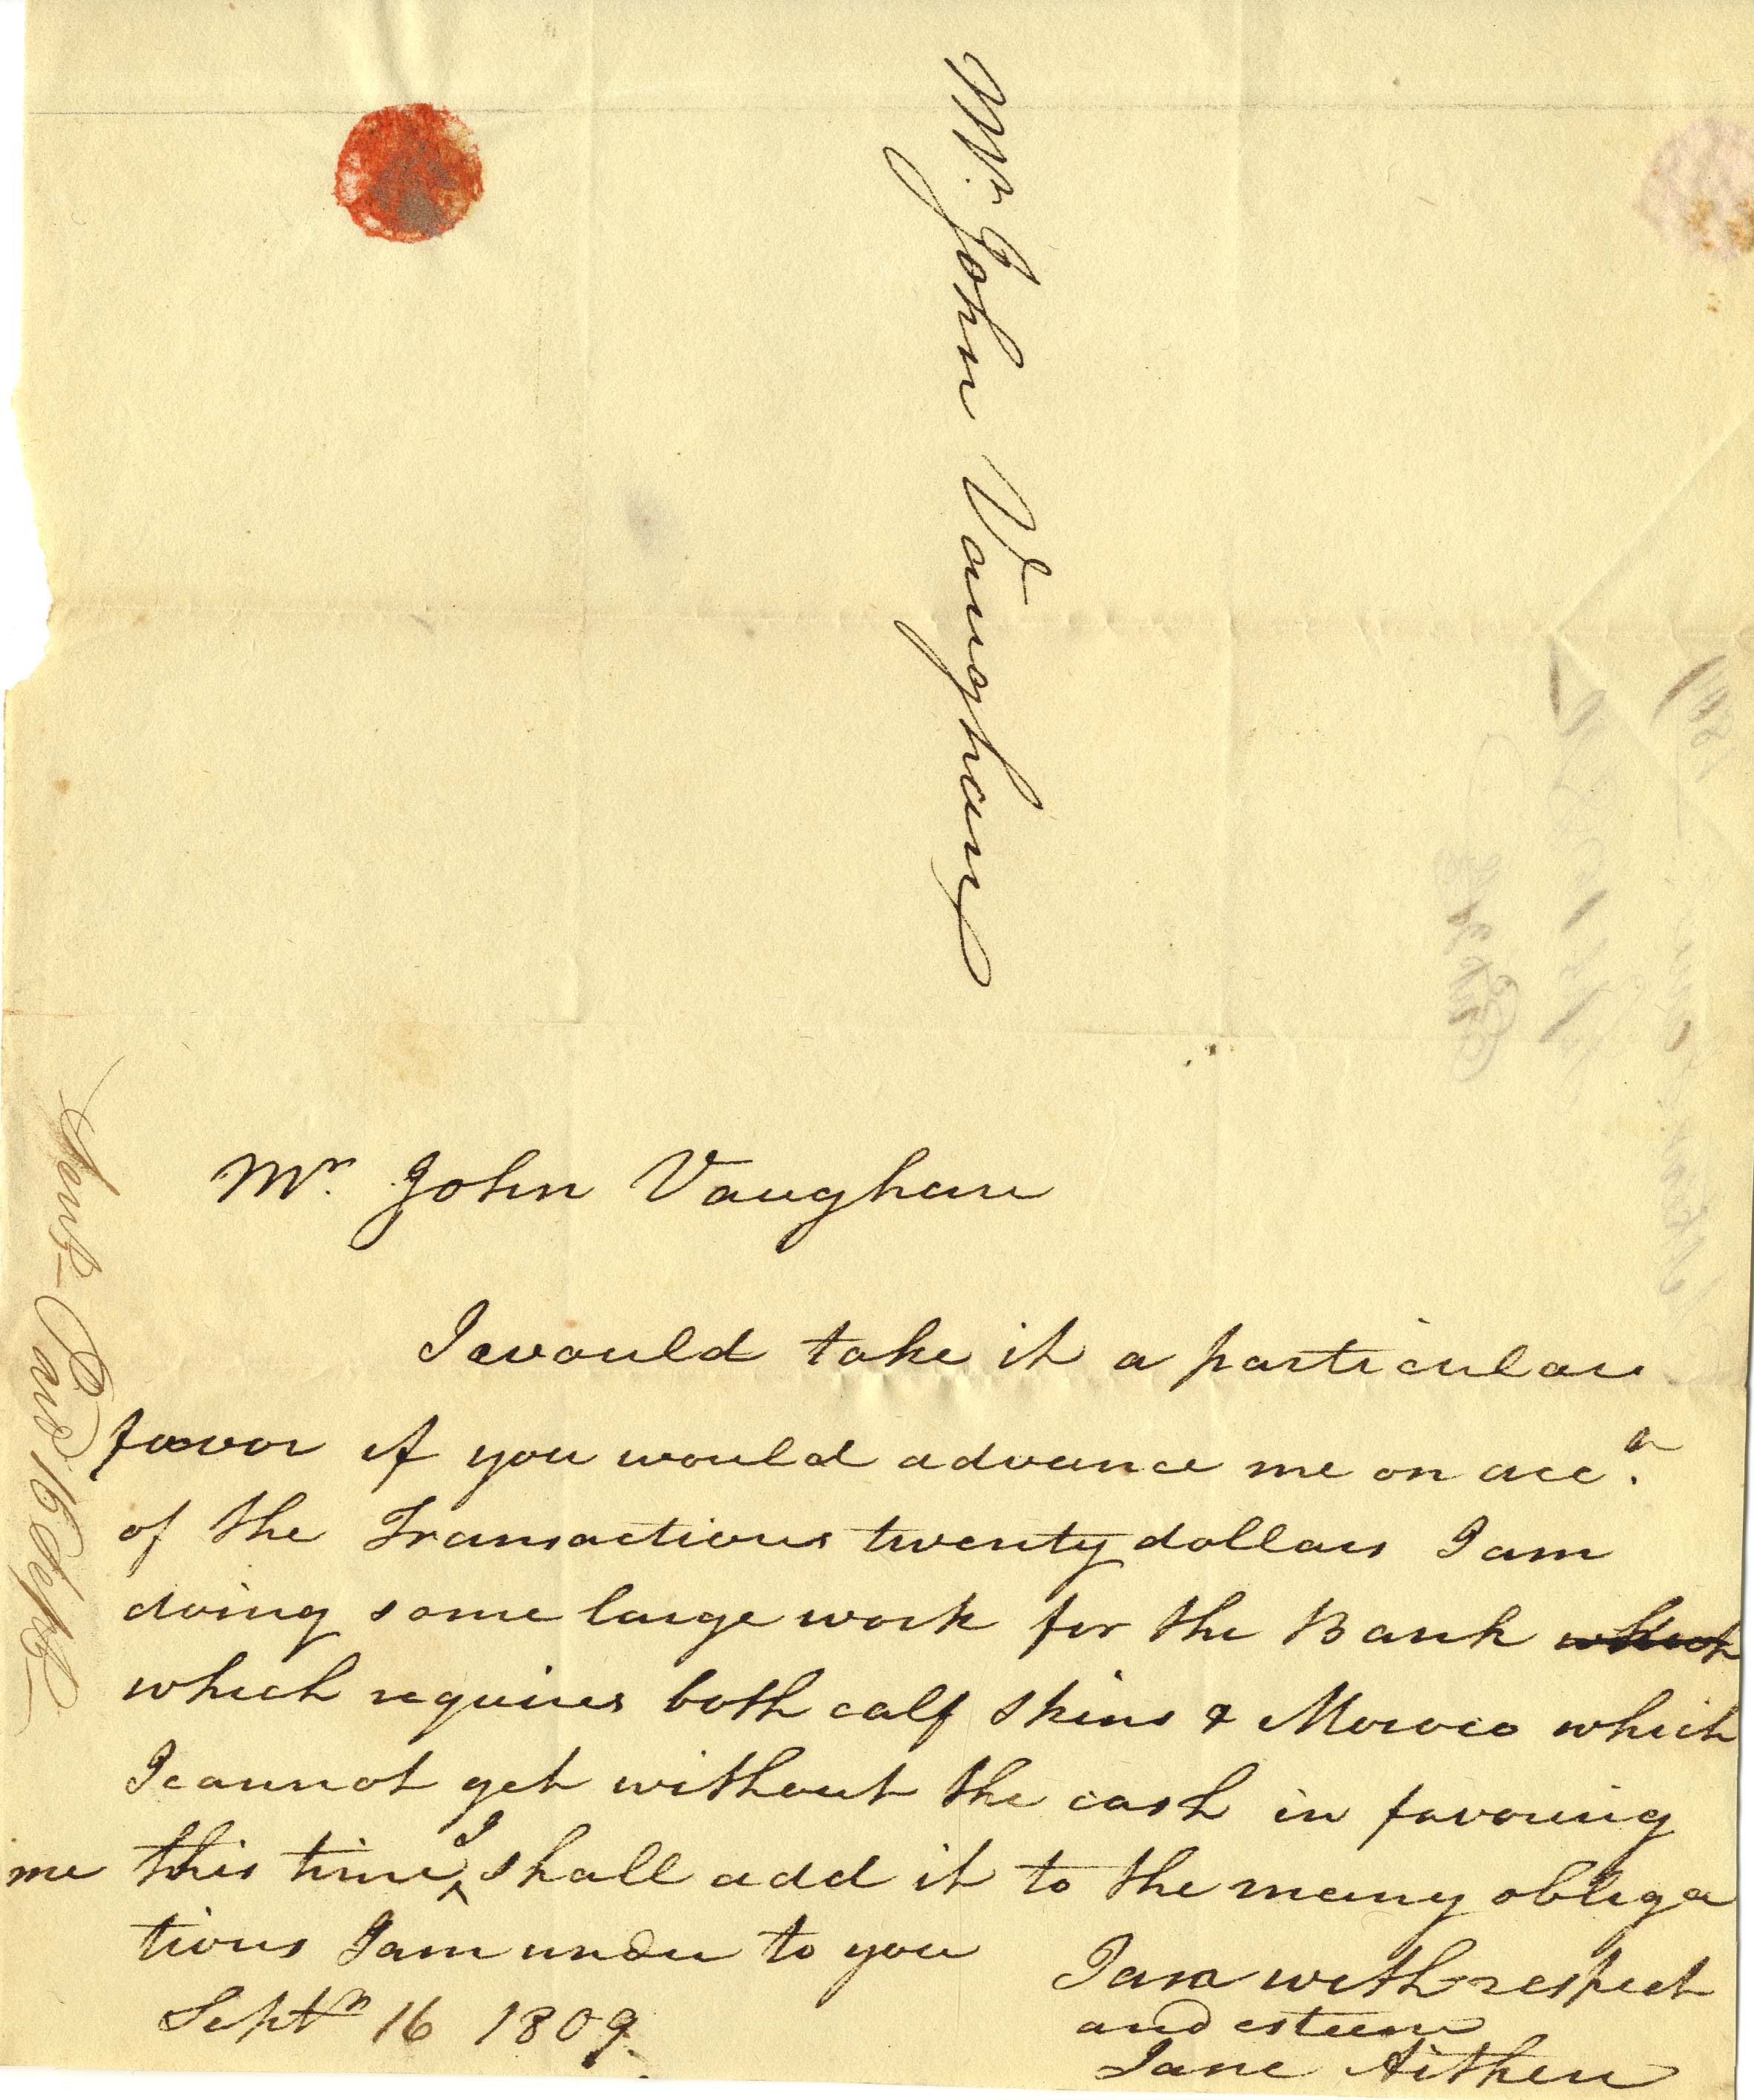 Mr. John Vaughan
Mr. John Vaughan
I would take it a particular
favor if you would advance me on acct.
of the Transactions twenty dollars I am
doing some large work for the Bank which
which requires both calf skins & Moroco which
I cannot get without the cash in favouring
me this time I shall add it to the many obliga
tions I am under to you
Septr 16 1809.
I am with respect
and esteem
Jane Aitken
Paid 16 Sept